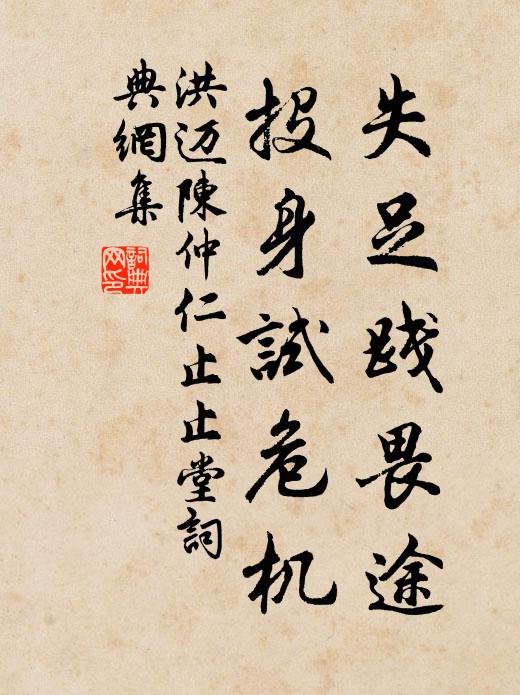 失足踐畏途
投身試危机
洪迈陳仲仁止止堂詞
典網集
詞典網印